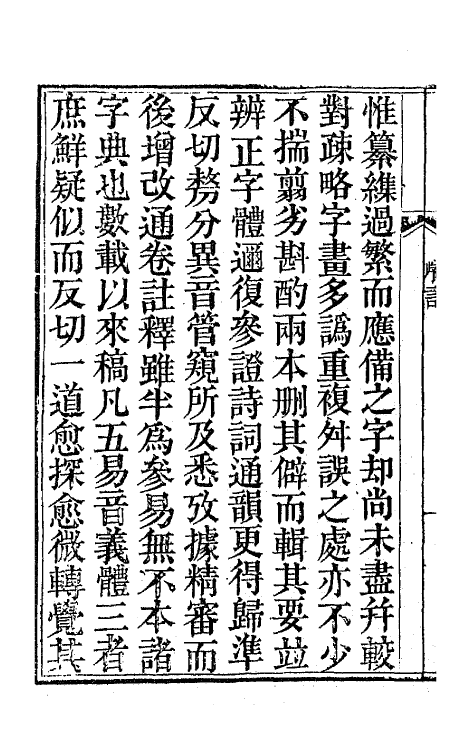 惟纂緝過繁而應備之字却尚未盡幷較
對疎略字畫多譌重複舛誤之處亦不少
不揣翦劣斟酌兩本刪其僻而輯其要竝
辨正字體邇復參證詩詞通韻更得歸準
反切務分異音管窺所及悉攷據精審而
後增改通卷註釋雖半爲參易無不本諸
字典也數載以來稿凡五易音義體三者
庶鮮疑似而反切一道愈探愈微轉覺其